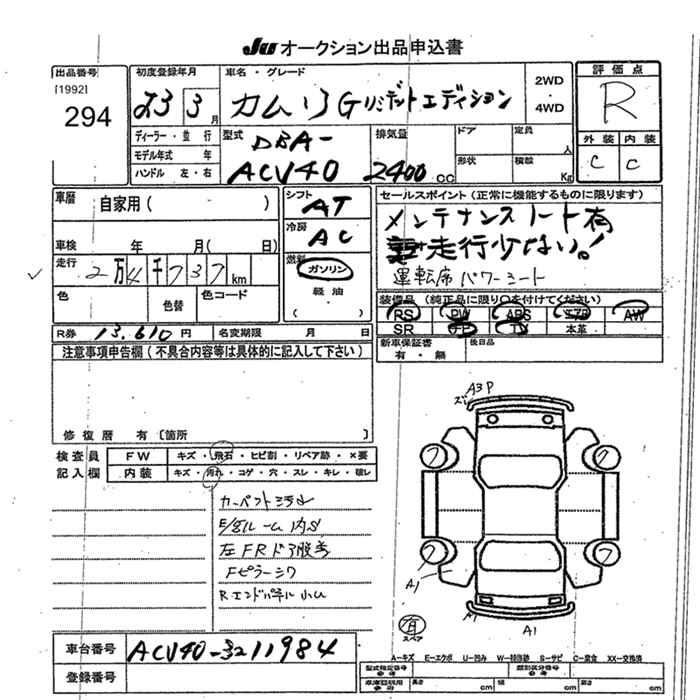 Ju オークション出品申込書
出品番号
[1992]
294
初度登録年月
23 3月
車名・グレード
カムリ Gリミテッドエディション
2WD
・
4WD
評価点
R
外装 内装
C C
ディーラー・並行
モデル年式 年
ハンドル 左・右
型式
DBA-
ACV40
排気量
2400 cc
ドア
定員
人
形状
積載
Kg
車歴
自家用( )
車検 年 月( 日)
走行 2万4千737km
色
色替
色コード
シフト
AT
冷房
AC
燃料
ガソリン
軽油
( )
セールスポイント(正常に機能するものに限ります)
メンテナンスノート有
走行少ない!
運転席パワーシート
装備品(純正品に限り○を付けてください)
RS PW ABS エアB AW
SR ナビ TV 本革
新車保証書
有・無
後日品
R券 13,610円
名変期限 月 日
注意事項申告欄(不具合内容等は具体的に記入して下さい)
修復歴 有〔箇所 〕
検査員
記入欄
FW キズ・飛石・ヒビ割・リペア跡・×要
内装 キズ・汚れ・コゲ・穴・スレ・キレ・破レ
カーペット汚れ
E/gルーム内S
左FRドア脱着
Fピラーシワ
Rエンドパネル小U
A3 P
ズレ
7
7
7
7
A1
A1
A1
有
スペア
車台番号 ACV40-3211984
登録番号
A—キズ E—エクボ U—凹み W—補修跡 S—サビ C—腐食 XX—交換済
型式指定番号
参考
類別区分番号
参考
車庫証明用
参考
長さ cm
幅 cm
高さ cm